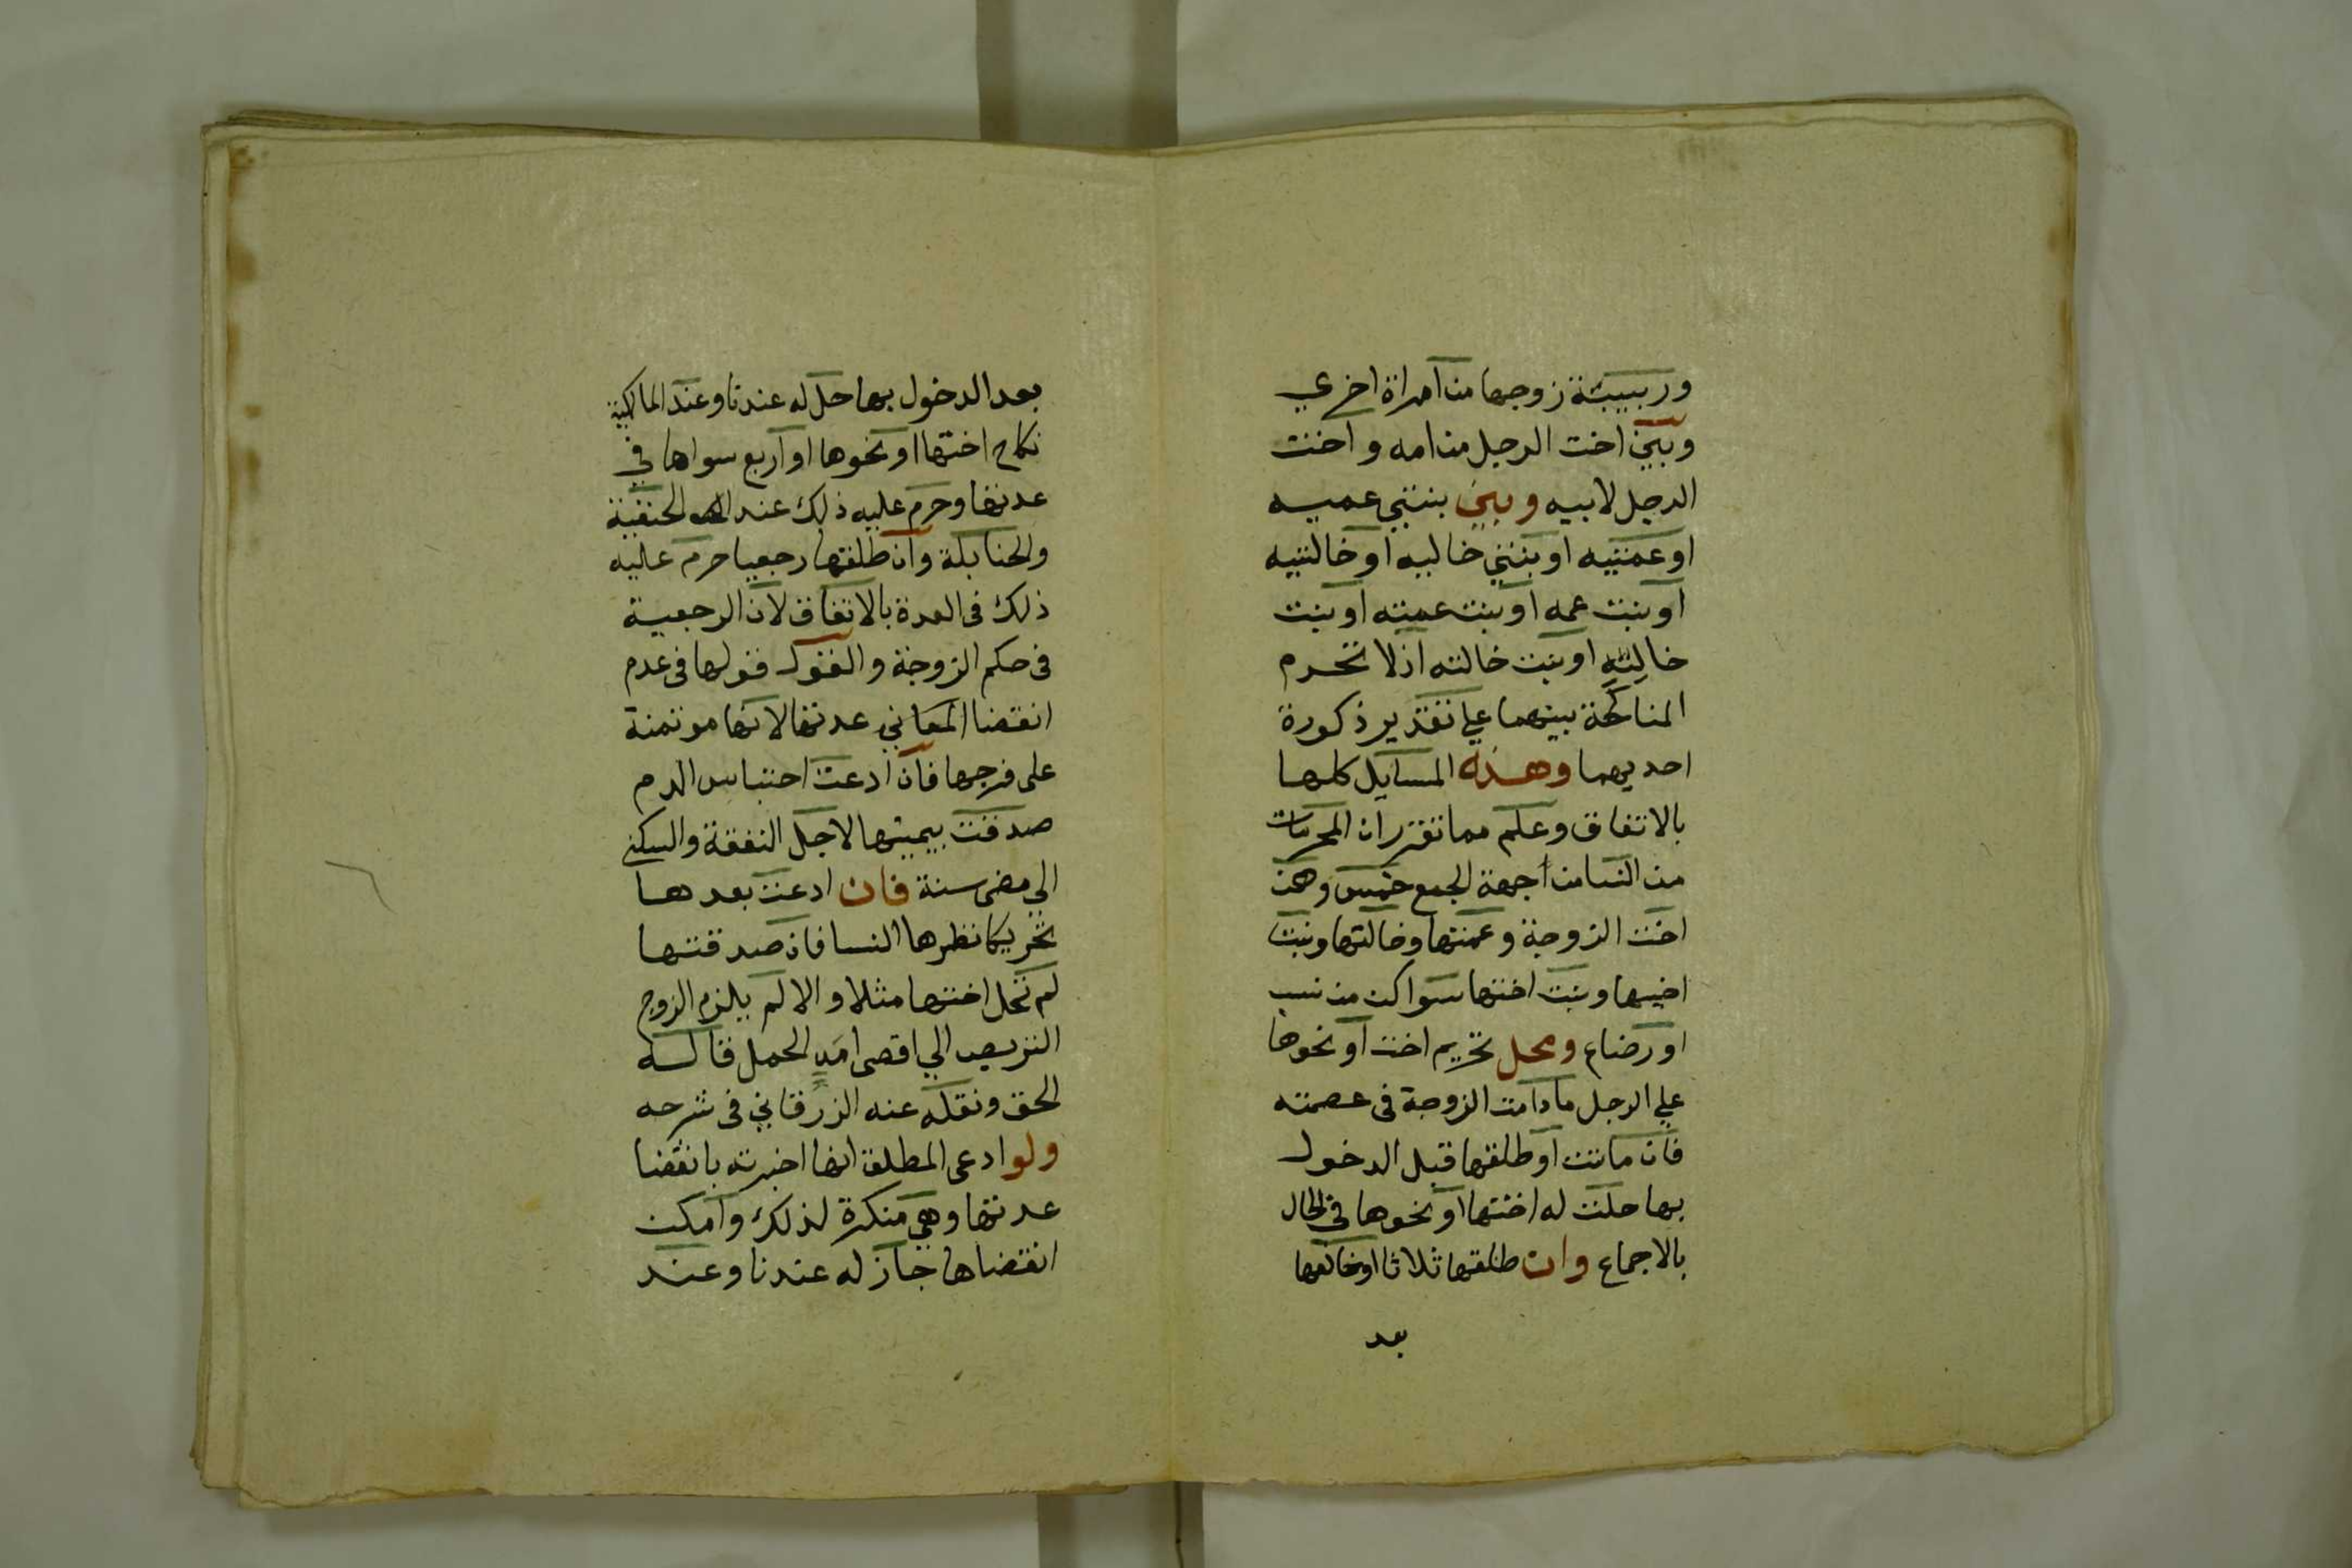 وربيبة زوجها من امراة اخري
وبين اخت الرجل من امه واخت
الرجل لابيه وبين بنتي عميه
او عمتيه او بنتي خاليه او خالتيه
او بنت عمه او بنت عمته او بنت
خالِتِهِ او بنت خالته اذ لا تحرم
المناكحة بينهما علي تقدير ذكورة
احديهما وهذه المسايل كلها
بالاتفاق وعلم مما تقرر ان المحرمات
من النسا من جهة الجمع خمس وهن
اخت الزوجة وعمتها وخالتها وبنت
اخيها وبنت اختها سوا كن من نسب
او رضاع ومحل تحريم اخت او نحوها
علي الرجل ما دامت الزوجة فى عصمته
فان ماتت او طلقها قبل الدخول
بها حلت له اختها او نحوها في الحال
بالاجماع وان طلقها ثلاثا او خالعها
بعد
بعد الدخول بها حل له عندنا وعند المالكية
نكاح اختها او نحوها او اربع سواها في
عدتها وحرم عليه ذلك عند الحنفية
والحنابلة وان طلقها رجعيا حرم عليه
ذلك فى العدة بالاتفاق لان الرجعية
فى حكم الزوجة والقول قولها فى عدم
انقضا عدتها لانها موتمنة
على فرجها فان ادعت احتباس الدم
صدقت بيمينها لاجل النفقة والسكني
الي مضى سنة فان ادعت بعدها
تحريكا نظرها النسا فان صدقتها
لم تحل اختها مثلا والا لم يلزم الزوج
التربص الي اقصى امَدِ الحمل قاله
الحق ونقله عنه الزرقاني فى شرحه
ولو ادعى المطلق انها اخبرته بانقضا
عدتها وهي منكرة لذلك وامكن
انقضاها جاز له عندنا وعند